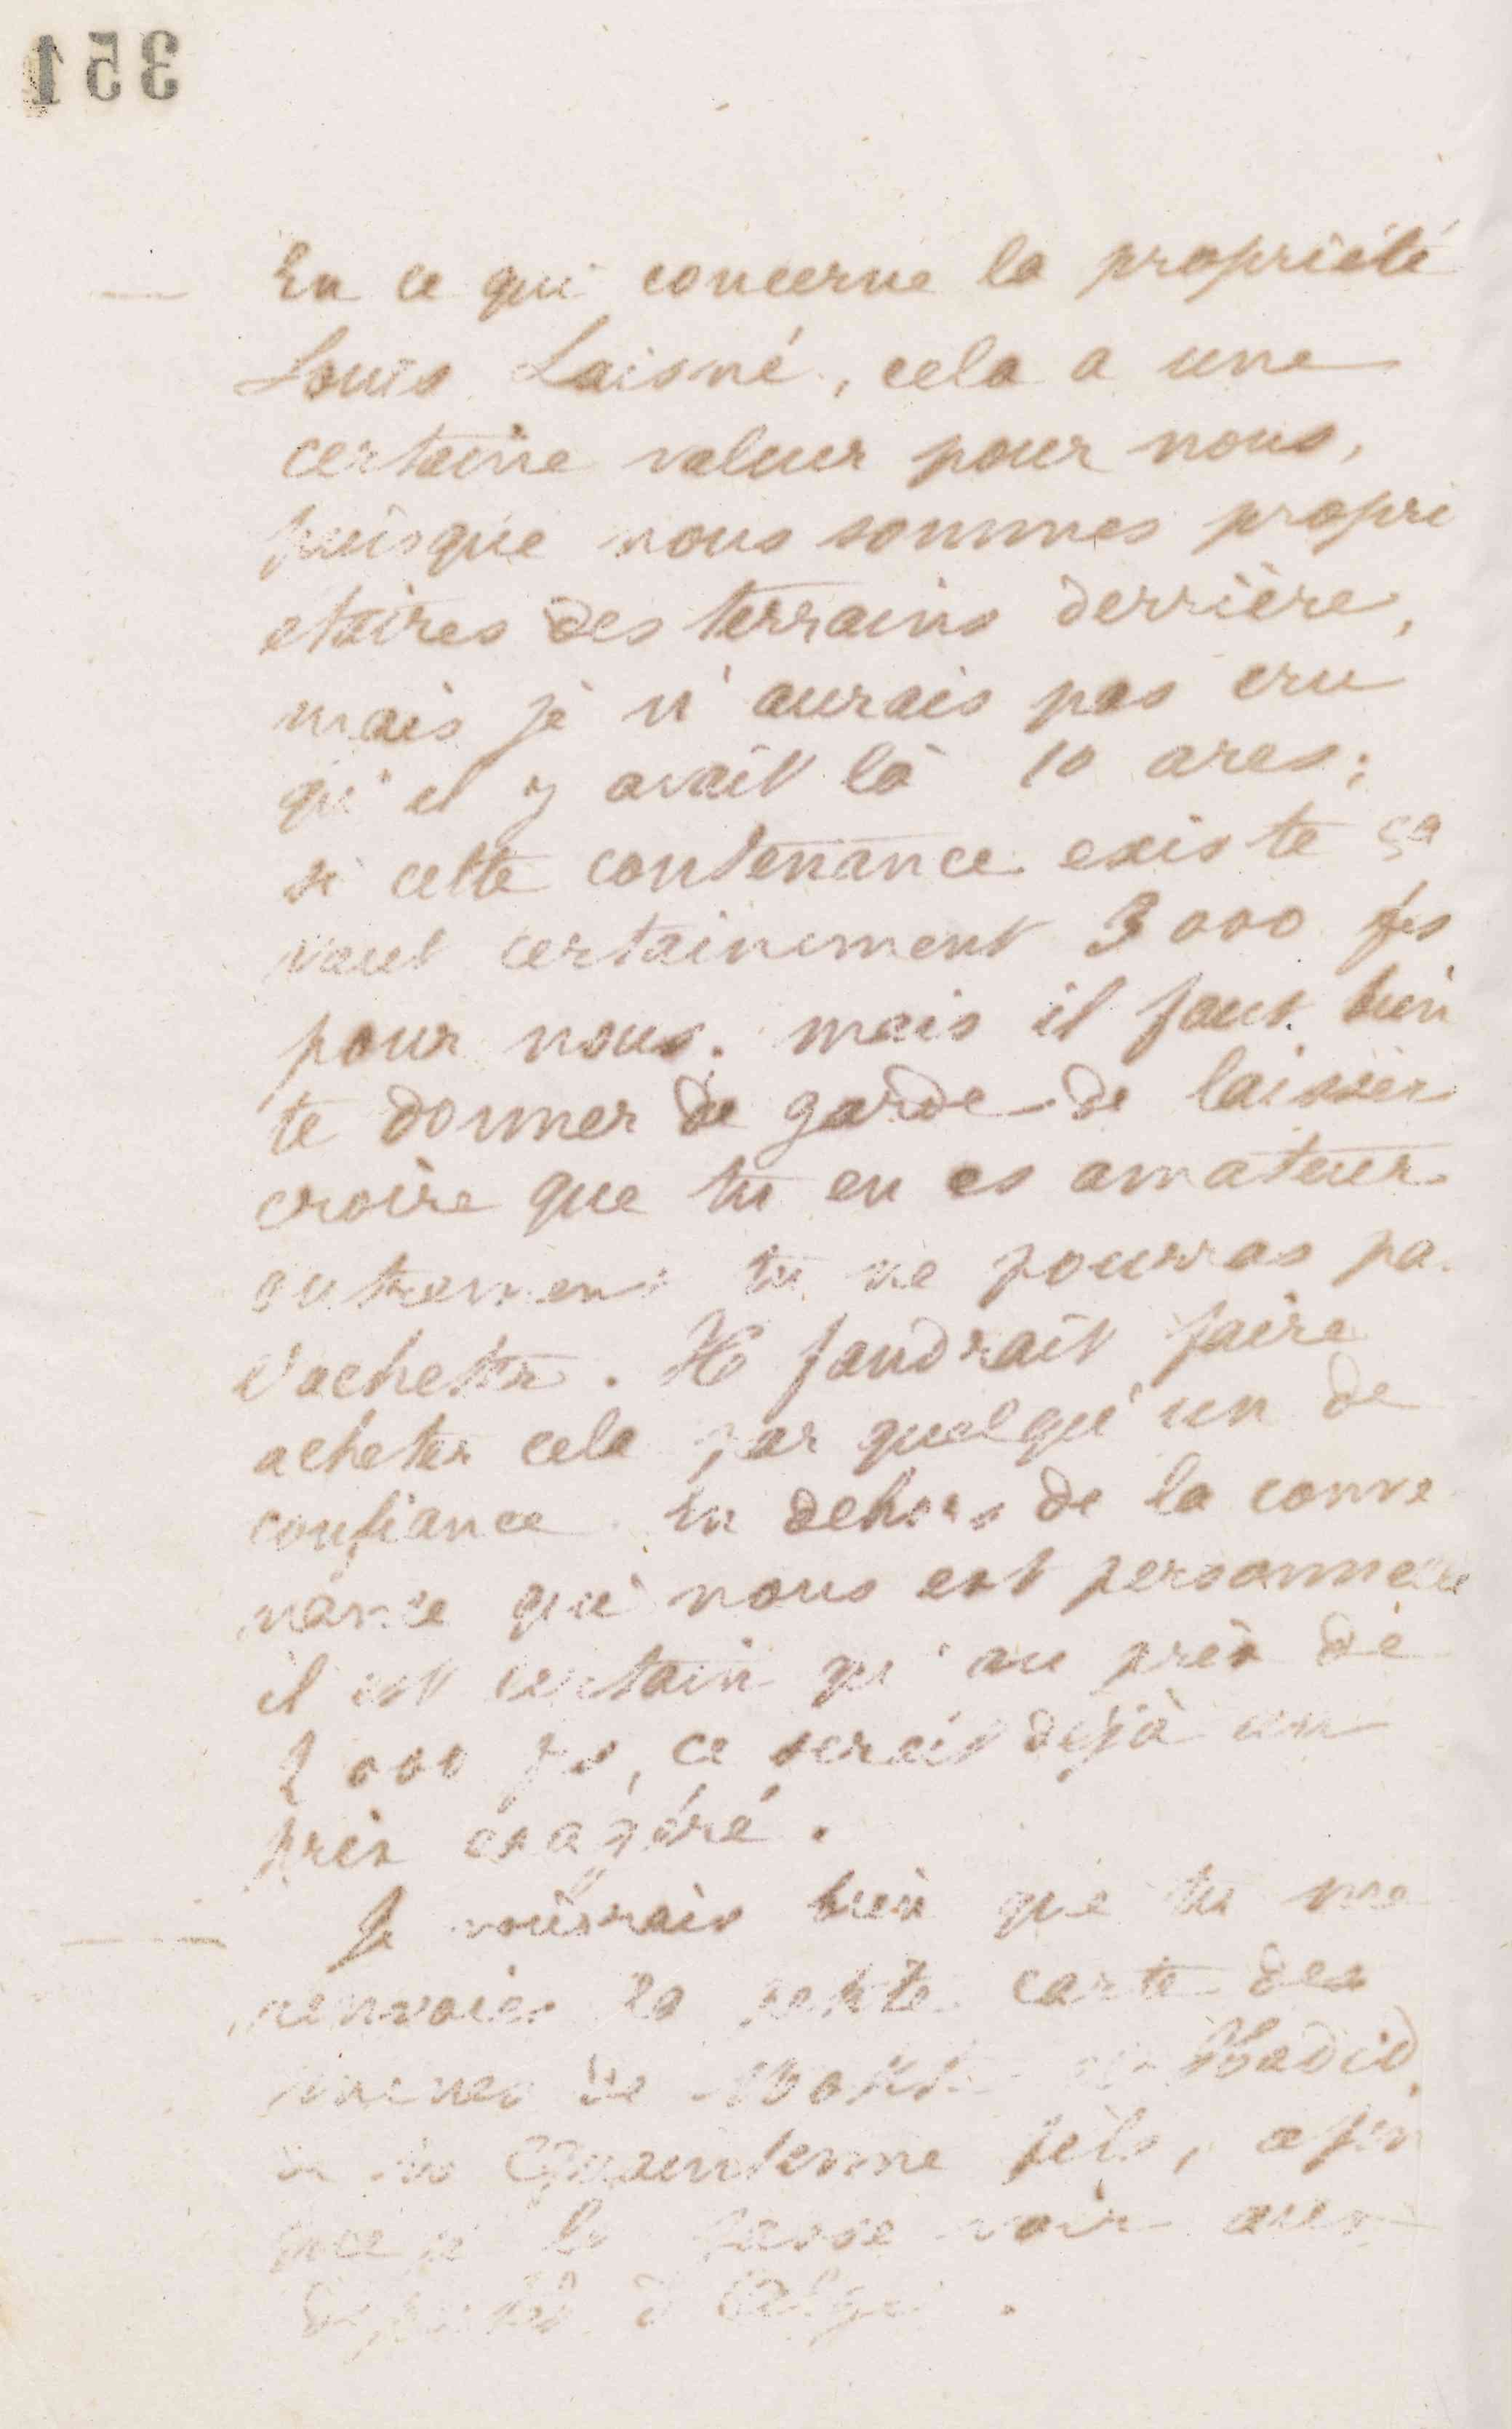 351
En ce qui concerne la propriété
Louis Laisné, cela a une
certaine valeur pour nous,
puisque nous sommes propri
etaires des terrains derrière,
mais je n'aurais pas cru
qu'il y avait là 10 ares;
si cette contenance existe ça
vaut certainement 3000 frs
pour nous. mais il faut bien
te donner de garde de laisser
croire que tu en es amateur
autrement tu ne pourras pas
l'acheter. Il faudrait faire
acheter cela par quelqu'un de
confiance. En dehors de la conve
nance qui nous est personnelle
il est certain qu'au prix de
2000 frs, ce serait déjà un
prix exagéré.
Je voudrais bien que tu me
renvoies la petite carte des
mines de Hadid,
fils, afin
que je la fasse voir aux
députés d'